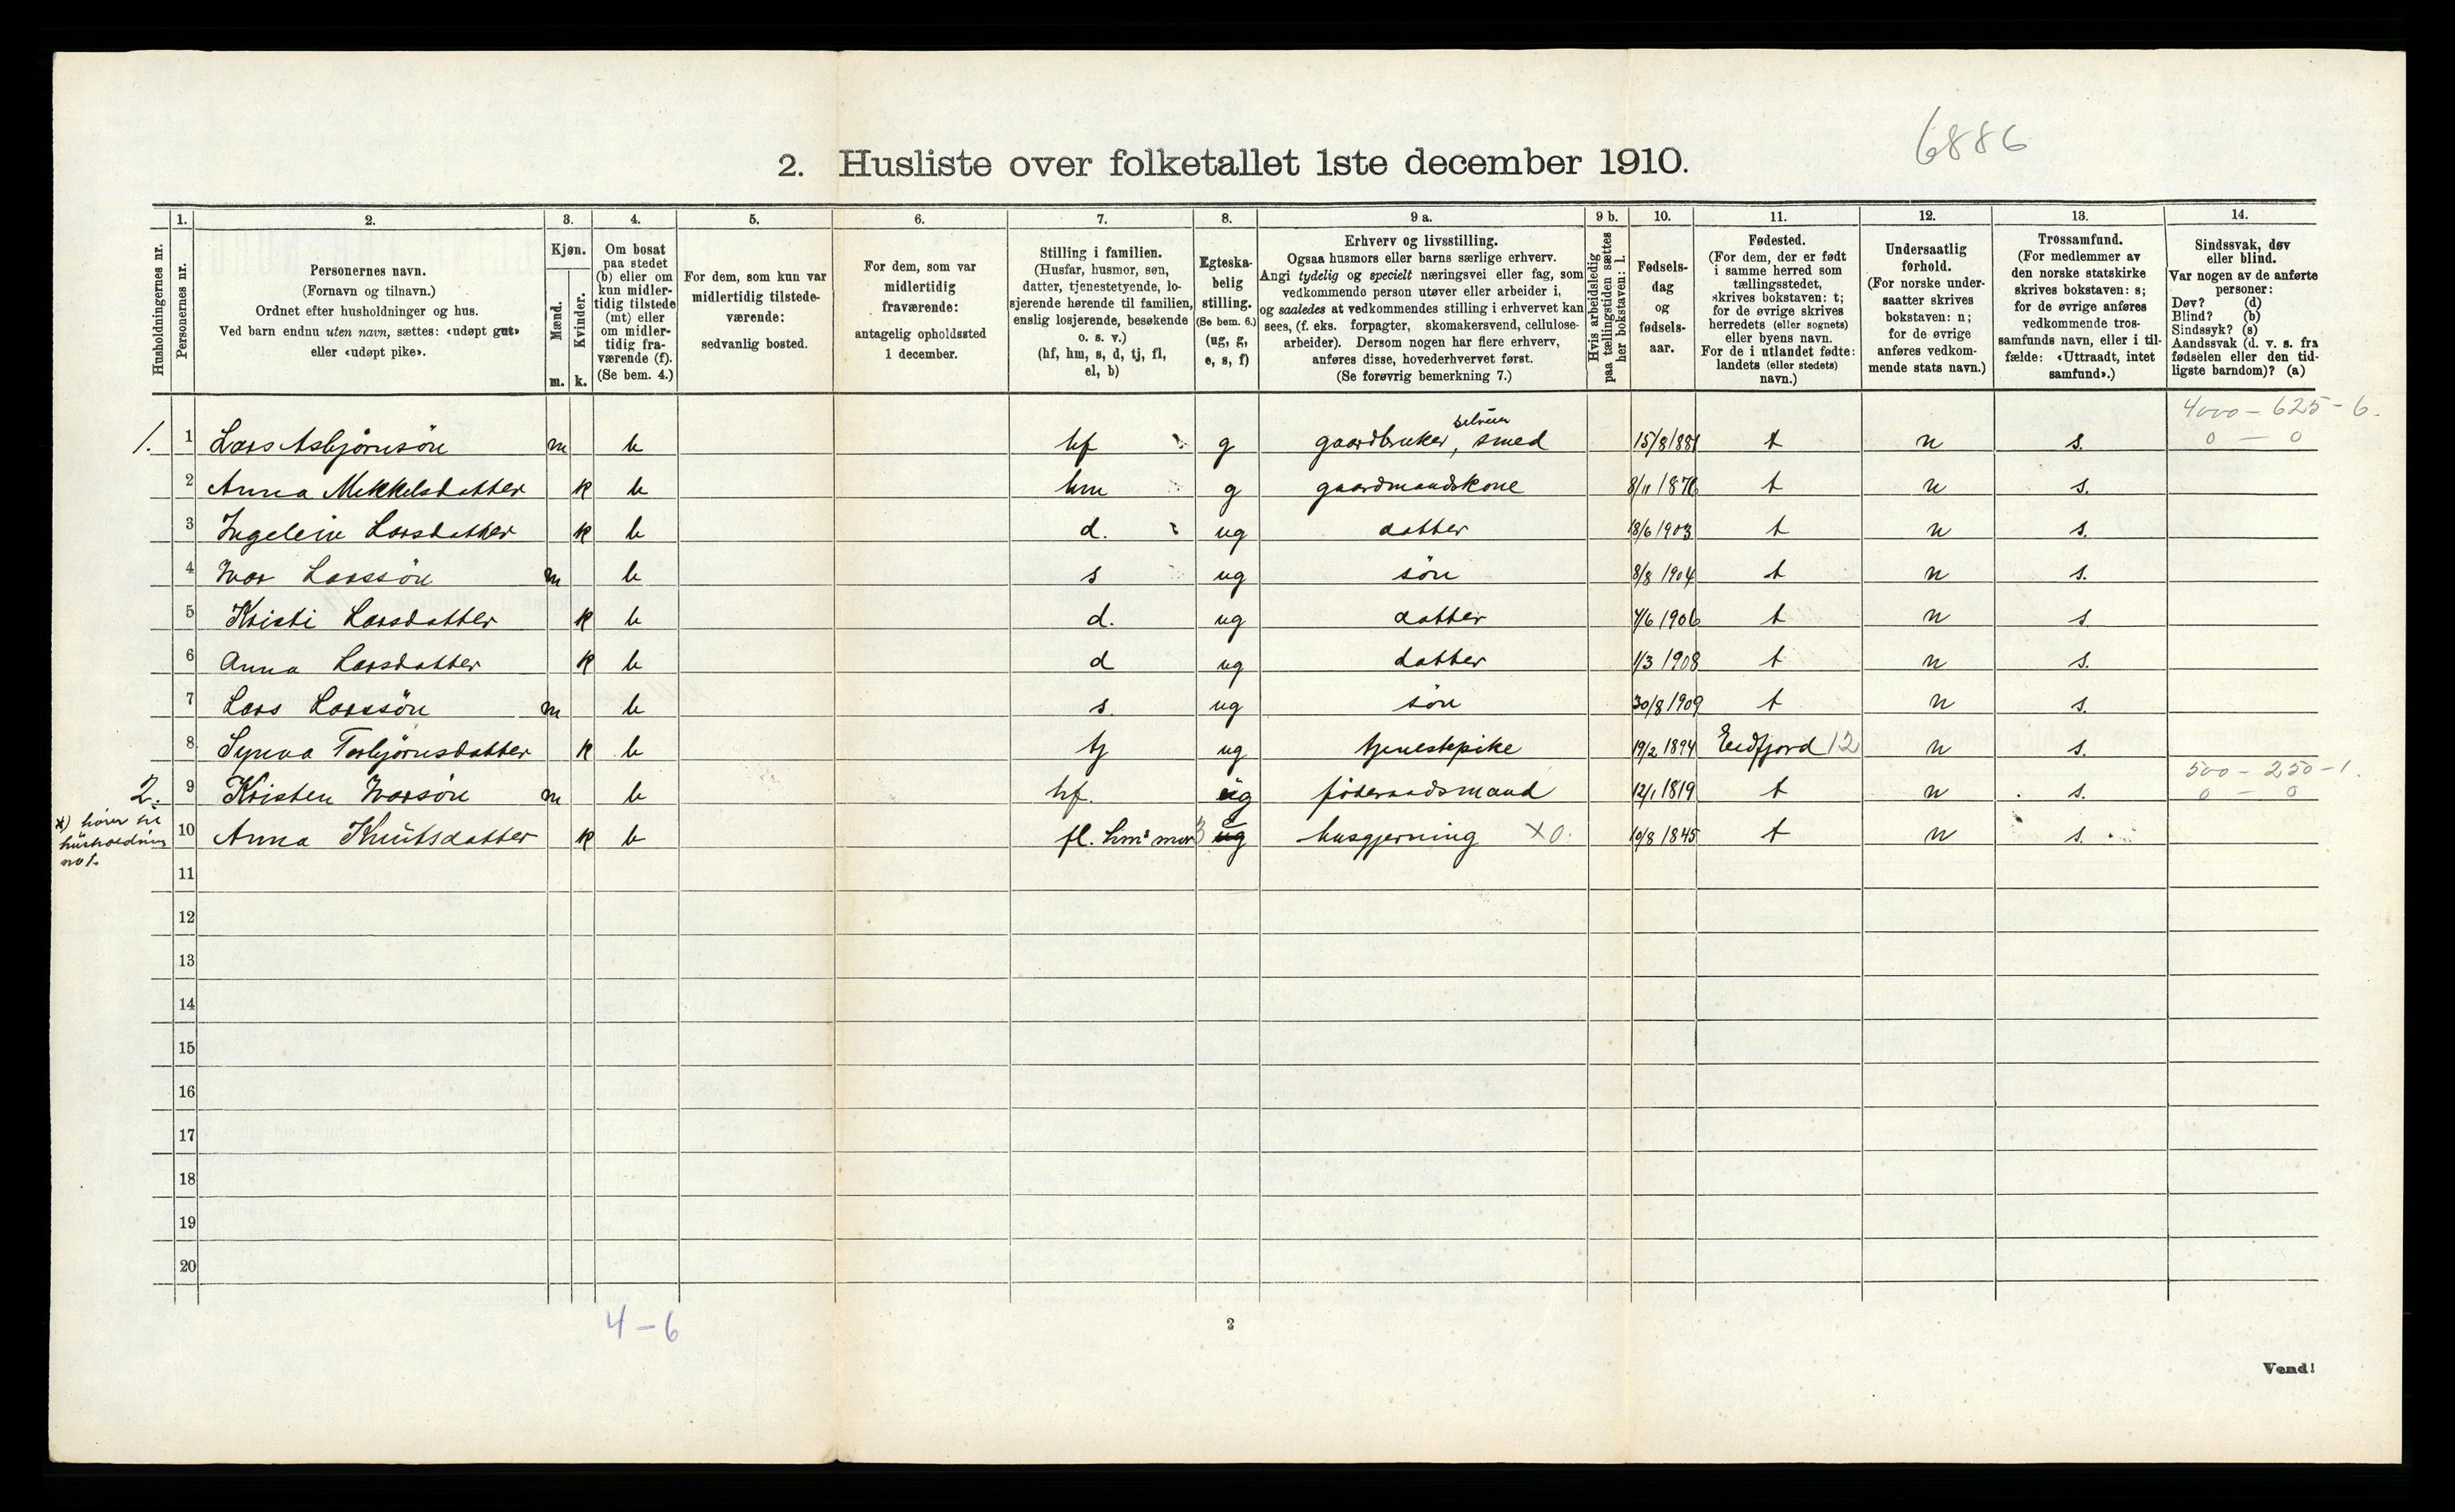 6886
2. Husliste over folketallet 1ste december 1910.
Husholdningernes nr.
1.
Personernes nr.
2.
Personernes navn.
(Fornavn og tilnavn.)
Ordnet efter husholdninger og hus.
Ved barn endnu uten navn, sættes: «udøpt gut»
eller «udøpt pike».
3.
Kjøn.
Mænd.
m.
Kvinder.
k.
4.
Om bosat
paa stedet
(b) eller om
kun midler-
tidig tilstede
(mt) eller
om midler-
tidig fra-
værende (f).
(Se bem. 4.)
5.
For dem, som kun var
midlertidig tilstede-
værende:
sedvanlig bosted.
6.
For dem, som var
midlertidig
fraværende:
antagelig opholdssted
1 december.
7.
Stilling i familien.
(Husfar, husmor, søn,
datter, tjenestetyende, lo-
sjerende hørende til familien,
enslig losjerende, besøkende
o. s. v.)
(hf, hm, s, d, tj, fl,
el, b)
8.
Egteska-
belig
stilling.
(Se bem. 6.)
(ug, g,
e, s, f)
9 a.
Erhverv og livsstilling.
Ogsaa husmors eller barns særlige erhverv.
Angi tydelig og specielt næringsvei eller fag, som
vedkommende person utøver eller arbeider i,
og saaledes at vedkommendes stilling i erhvervet kan
sees, (f. eks. forpagter, skomakersvend, cellulose-
arbeider). Dersom nogen har flere erhverv,
anføres disse, hovederhvervet først.
(Se forøvrig bemerkning 7.)
9 b.
Hvis arbeidsledig
paa tællingstiden sættes
her bokstaven: l.
10.
Fødsels-
dag
og
fødsels-
aar.
11.
Fødested.
(For dem, der er født
i samme herred som
tællingsstedet,
skrives bokstaven: t;
for de øvrige skrives
herredets (eller sognets)
eller byens navn.
For de i utlandet fødte:
landets (eller stedets)
navn.)
12.
Undersaatlig
forhold.
(For norske under-
saatter skrives
bokstaven: n;
for de øvrige
anføres vedkom-
mende stats navn.)
13.
Trossamfund.
(For medlemmer av
den norske statskirke
skrives bokstaven: s;
for de øvrige anføres
vedkommende tros-
samfunds navn, eller i til-
fælde: «Uttraadt, intet
samfund».)
14.
Sindssvak, døv
eller blind.
Var nogen av de anførte
personer:
Døv? (d)
Blind? (b)
Sindssyk? (s)
Aandssvak (d. v. s. fra
fødselen eller den tid-
ligste barndom)? (a)
4000 - 625 - 6.
1. 1 Lars Asbjørnsön m b hf g gaardbruker, smed 15/8 1881 t n s. 0 - 0
2 Anna Mikkelsdatter k b hm g gaardmandskone 8/11 1876 t n s.
3 Ingelein Larsdatter k b d. ug datter 18/6 1903 t n s.
4 Ivar Larssön m b s ug sön 8/8 1904 t n s.
5 Kristi Larsdatter k b d. ug datter 4/6 1906 t n s
6 Anna Larsdatter k b d ug datter 1/3 1908 t n s.
7 Lars Larssön m b s. ug sön 30/8 1909 t n s.
8 Synva Torbjørnsdatter k b tj ug tjenestepike 19/2 1894 Eidfjord 12 n s.
500 - 250 - 1.
2. 9 Kristen Ivarsön m b hf. ug föderaadsmand 12/1 1819 t n s. 0 - 0
x) hører til
husholdning
no 1.
10 Anna Knutsdatter k b fl. hm's mor 3 ug e husgjerning x0. 10/8 1845 t n s.
11
12
13
14
15
16
17
18
19
20
4 - 6
2
Vend!